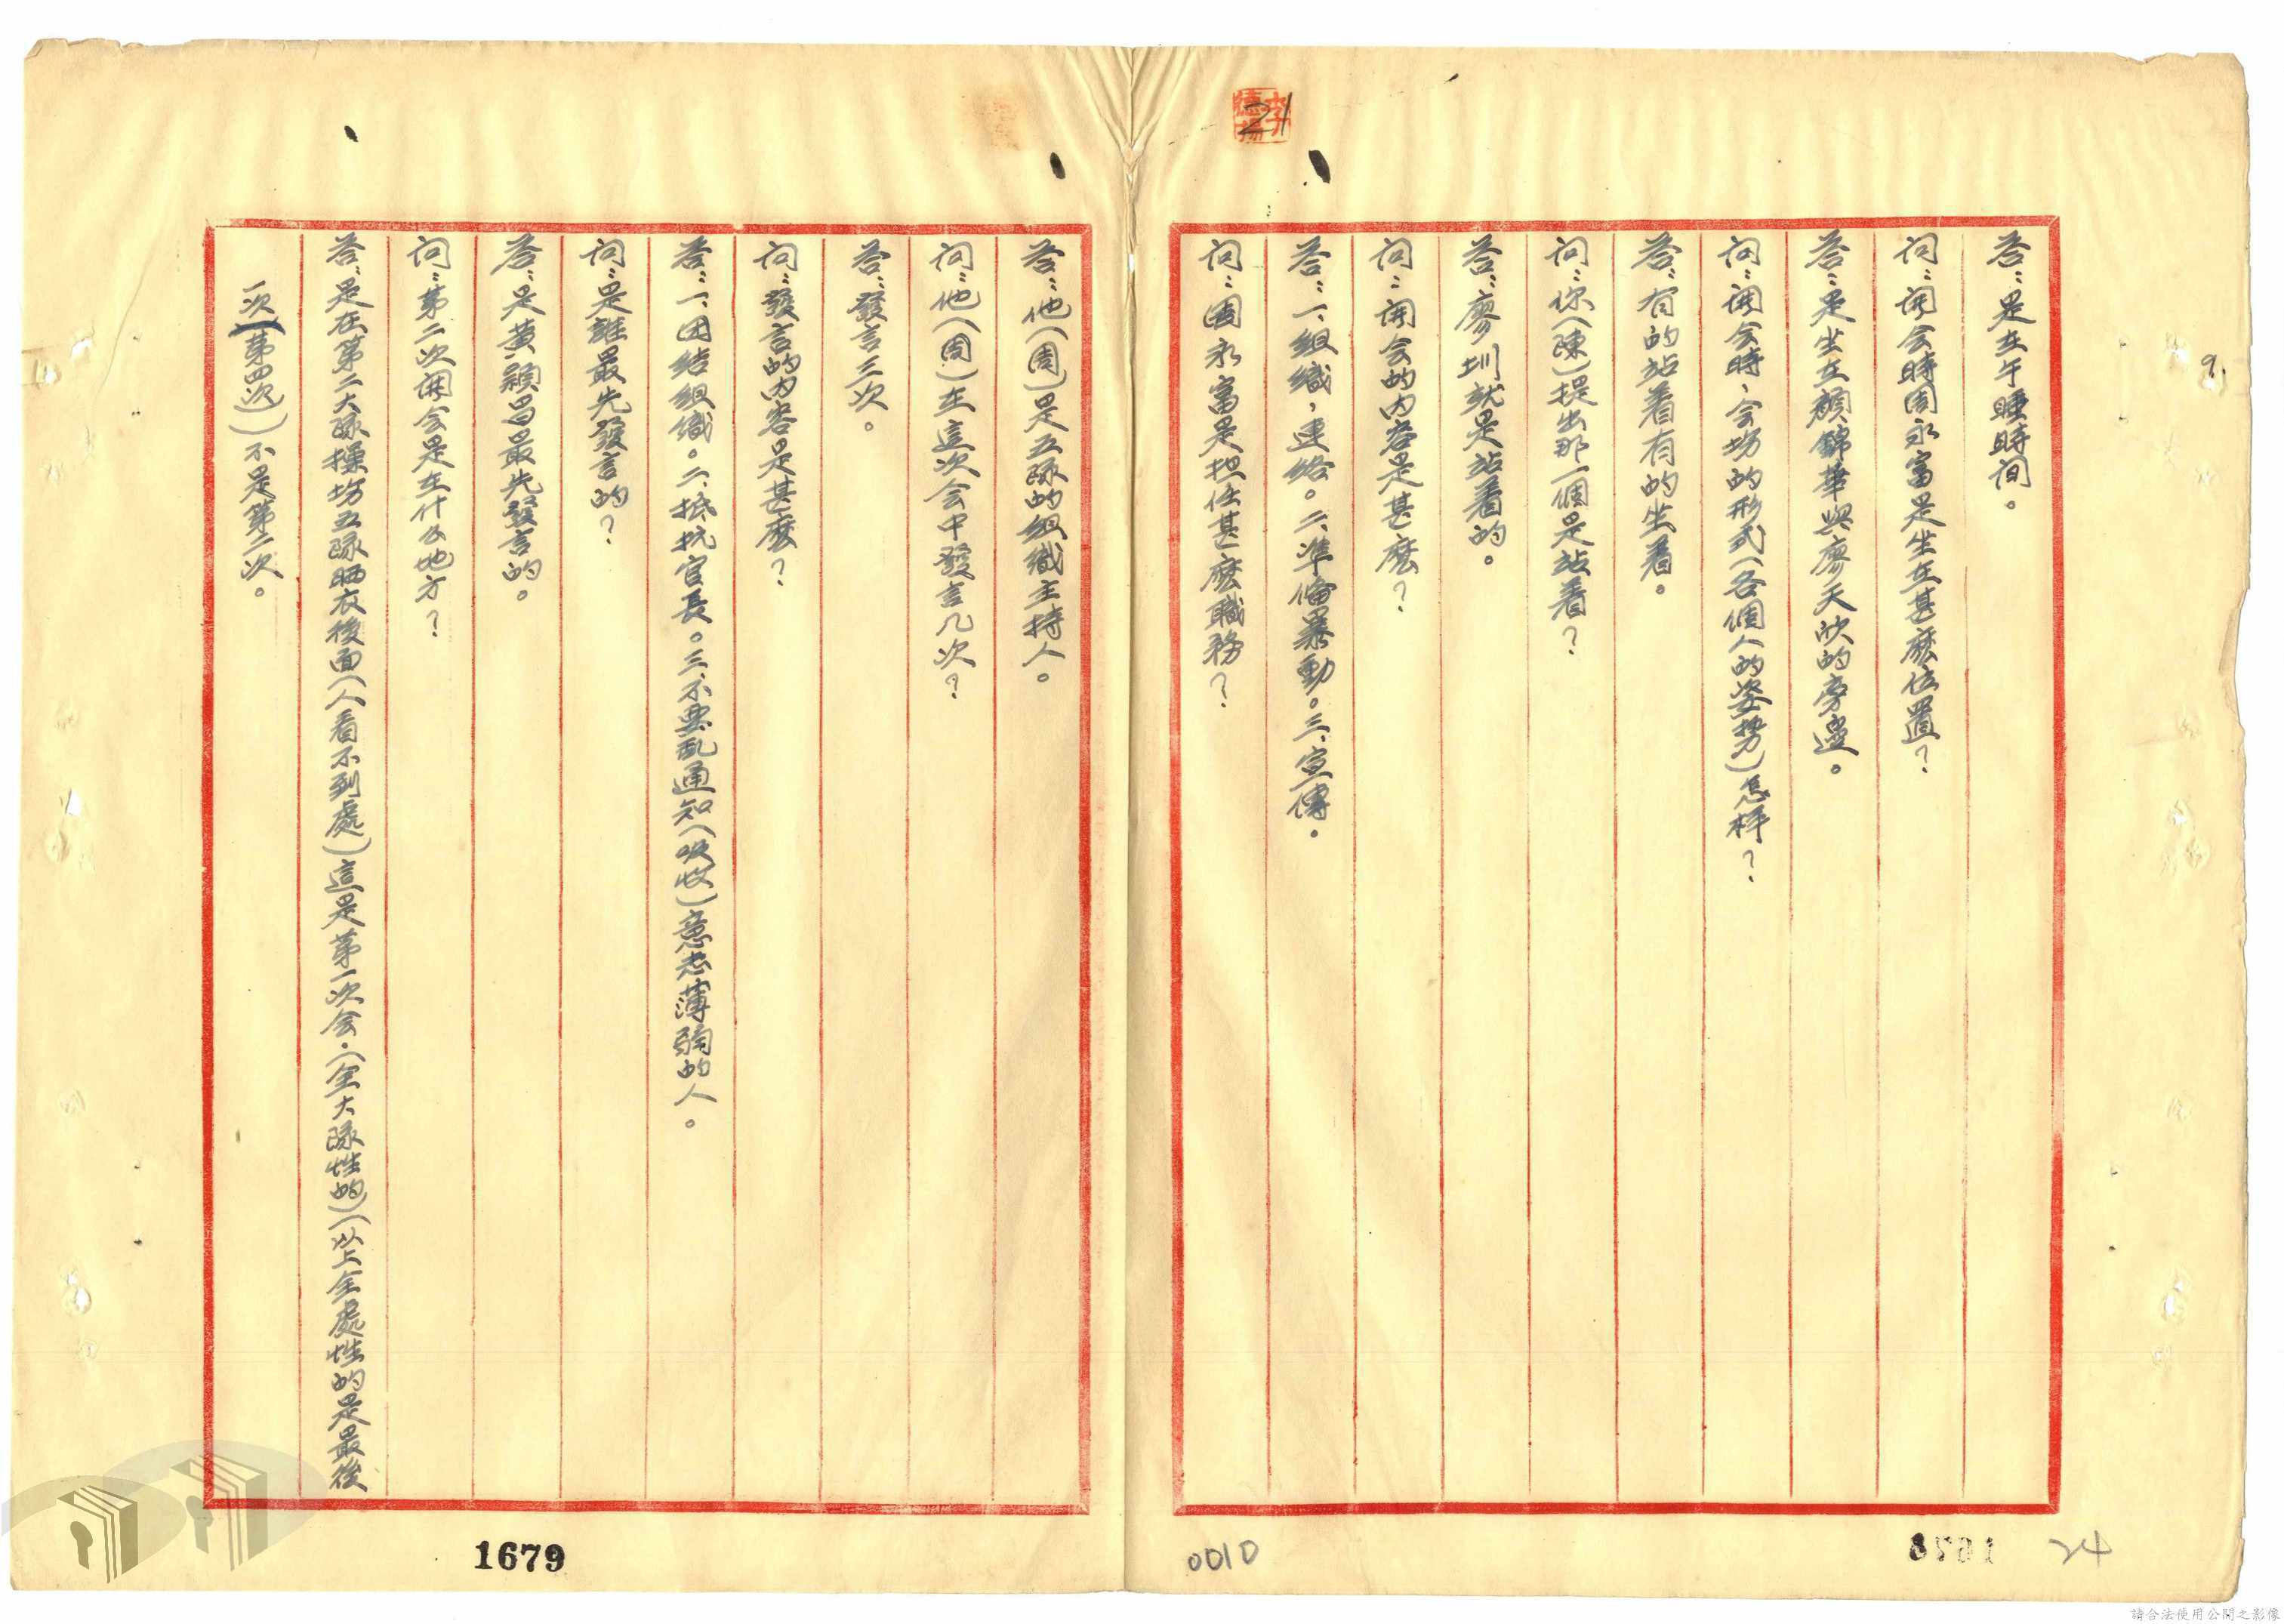 答：是在午睡時间。
问：開会時周永富是坐在甚麼位置？
答：是坐在顏錦華與廖天欣的旁邊。
问：開会時，会場的形式（各個人的姿勢）怎样？
答：有的站着有的坐着。
问：你（陳）提出那一個是站着？
答：廖圳就是站着的。
问：開会的内容是甚麼？
答：一、組織，連絡。二、準備暴動。三、宣傳。
问：周永富是担任甚麼職務？
答：他（周）是五隊的組織主持人。
问：他（周）在這次会中發言几次？
答：發言三次。
问：發言的内容是甚麼？
答：一、团结組織。二、抵抗官長。三、不要乱通知（吸收）意志薄弱的人。
问：是誰最先發言的？
答：是黃穎昌最先發言的。
问：第二次開会是在什么地方？
答：是在第二大隊操場五隊晒衣後面（人看不到處）這是第一次会．（全大隊性的）（以上全處性的是最後
一次（第四次）不是第二次。
李德揚
21
9.
1679
0010
1678
24
請合法使用公開之影像